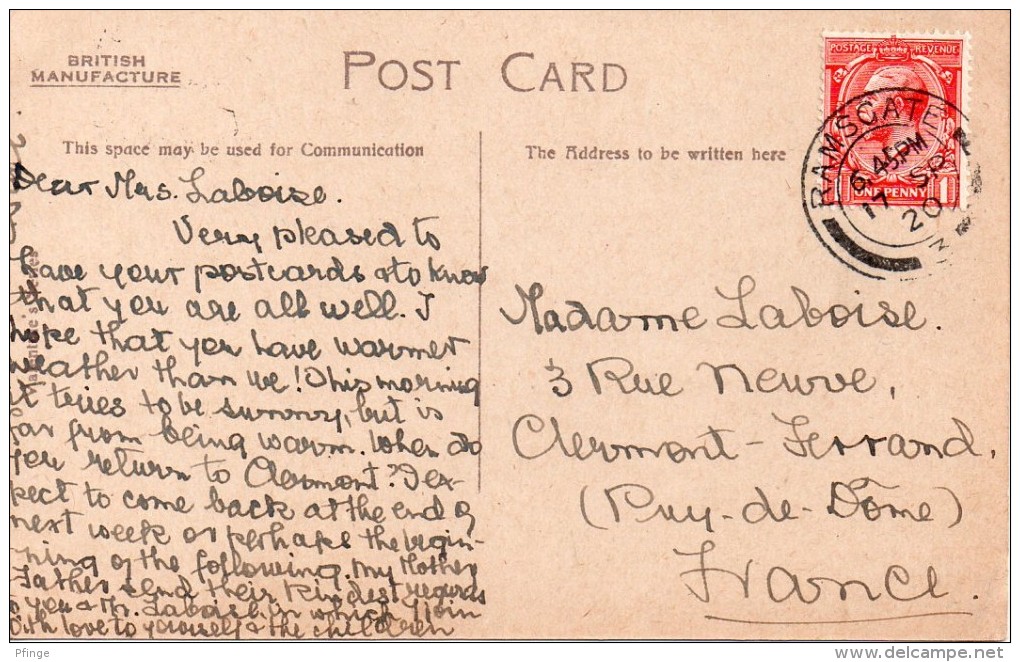 BRITISH
MANUFACTURE
POST CARD
This space may be used for Communication
The Address to be written here
POSTAGE REVENUE
ONE PENNY
1
RAMSGATE
6.45PM
17 SP
20
Dear Mrs. Laboise.
Very pleased to
have your postcards & to know
that you are all well. I
hope that you have warmer
weather than we! This morning
it tries to be sunny, but is
far from being warm. When do
you return to Clermont? I ex-
pect to come back at the end of
next week or perhaps the begin-
-ning of the following. My Mother
Father send their kindest regards
to you & Mr. Laboise in which I join
with love to yourself & the children
Madame Laboise.
3 Rue Neuve,
Clermont-Ferrand,
(Puy-de-Dôme)
France
Pfinge
www.delcampe.net